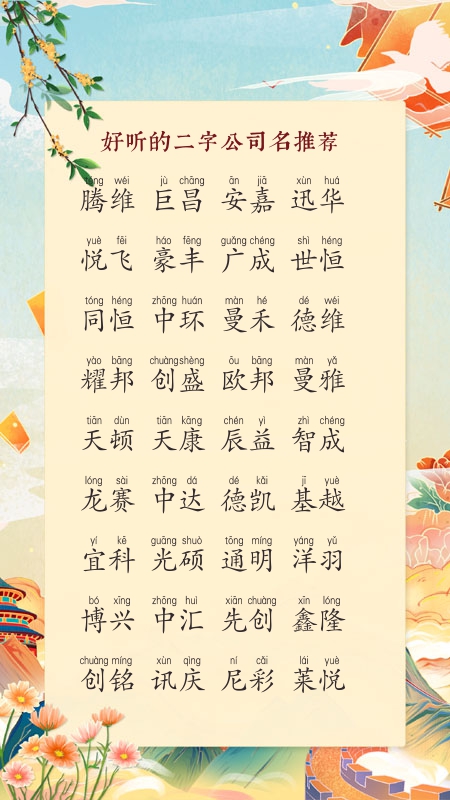 好听的二字公司名推荐
téng wéi jù chāng ān jiā xùn huá
腾维 巨昌 安嘉 迅华
yuè fēi háo fēng guǎng chéng shì héng
悦飞 豪丰 广成 世恒
tóng héng zhōng huán màn hé dé wéi
同恒 中环 曼禾 德维
yào bāng chuàng shèng ōu bāng màn yǎ
耀邦 创盛 欧邦 曼雅
tiān dùn tiān kāng chén yì zhì chéng
天顿 天康 辰益 智成
lóng sài zhōng dá dé kǎi jī yuè
龙赛 中达 德凯 基越
yí kē guāng shuò tōng míng yáng yǔ
宜科 光硕 通明 洋羽
bó xīng zhōng huì xiān chuàng xīn lóng
博兴 中汇 先创 鑫隆
chuàng míng xùn qìng ní cǎi lái yuè
创铭 讯庆 尼彩 莱悦